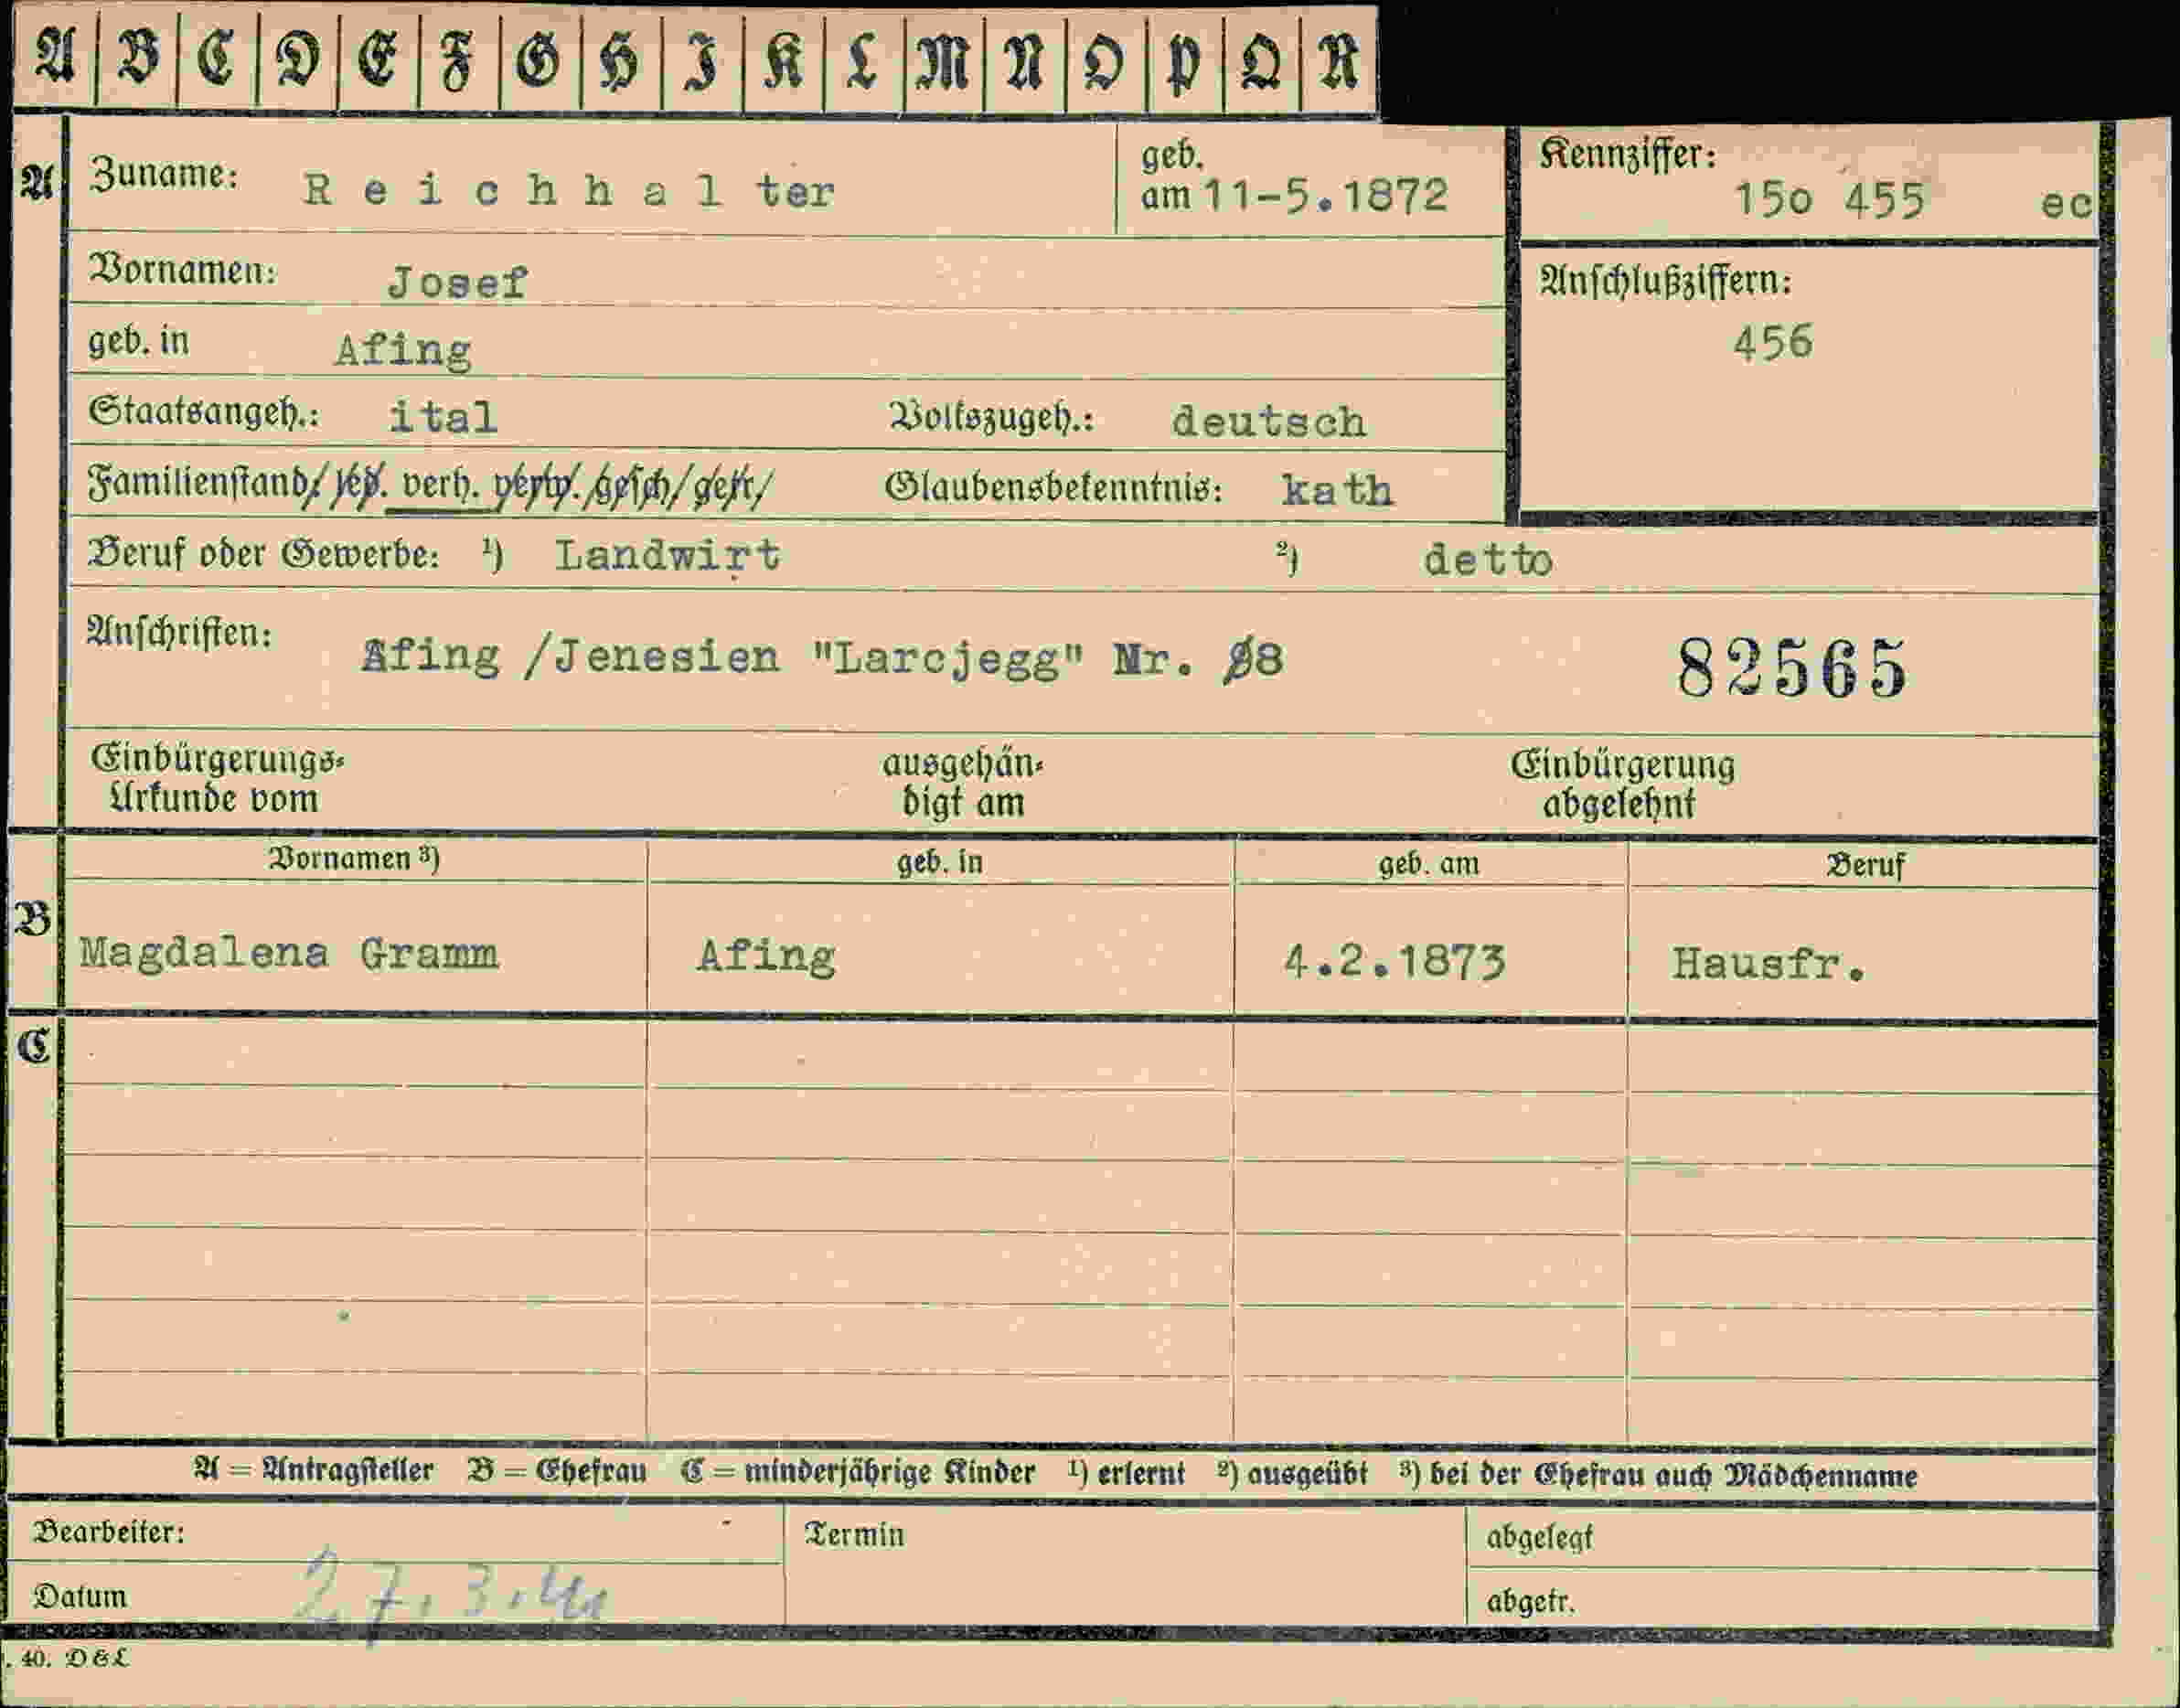 A B C D E F G H I K L M N O P Q R
A Zuname: Reichhalter geb. am 11-5.1872 Kennziffer: 15o 455 ec
Vornamen: Josef Anschlußziffern:
geb. in Afing 456
Staatsangeh.: ital Volkszugeh.: deutsch
Familienstand: led. verh. verw. gesch. getr. Glaubensbekenntnis: kath
Beruf oder Gewerbe: ¹) Landwirt ²) detto
Anschriften: Afing /Jenesien "Larcjegg" Nr. 8 82565
Einbürgerungs- ausgehän- Einbürgerung
Urkunde vom digt am abgelehnt
Vornamen ³) geb. in geb. am Beruf
B Magdalena Gramm Afing 4.2.1873 Hausfr.
C
A = Antragsteller B = Ehefrau C = minderjährige Kinder ¹) erlernt ²) ausgeübt ³) bei der Ehefrau auch Mädchenname
Bearbeiter: Termin abgelegt
Datum 27.3.41 abgetr.
. 40. D & L